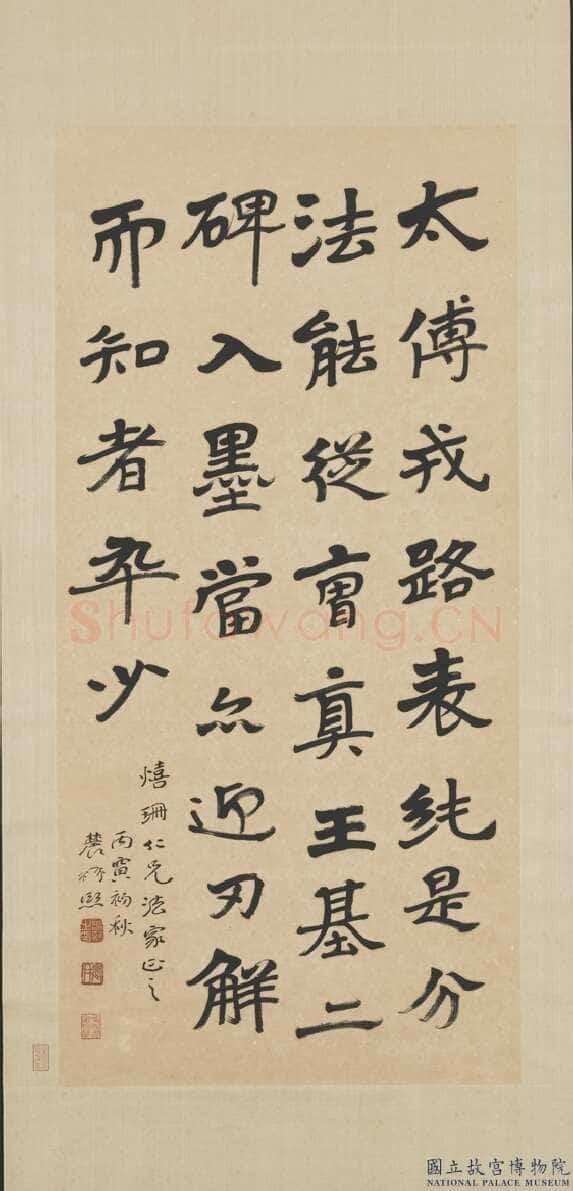 太傅戎路表純是分
法能從曺真王基二
碑入墨當亦迎刃解
而知者卒少
熺珊仁兄法家正之
丙寅初秋
農髯熙
Shufawang.CN
國立故宮博物院
NATIONAL PALACE MUSEUM